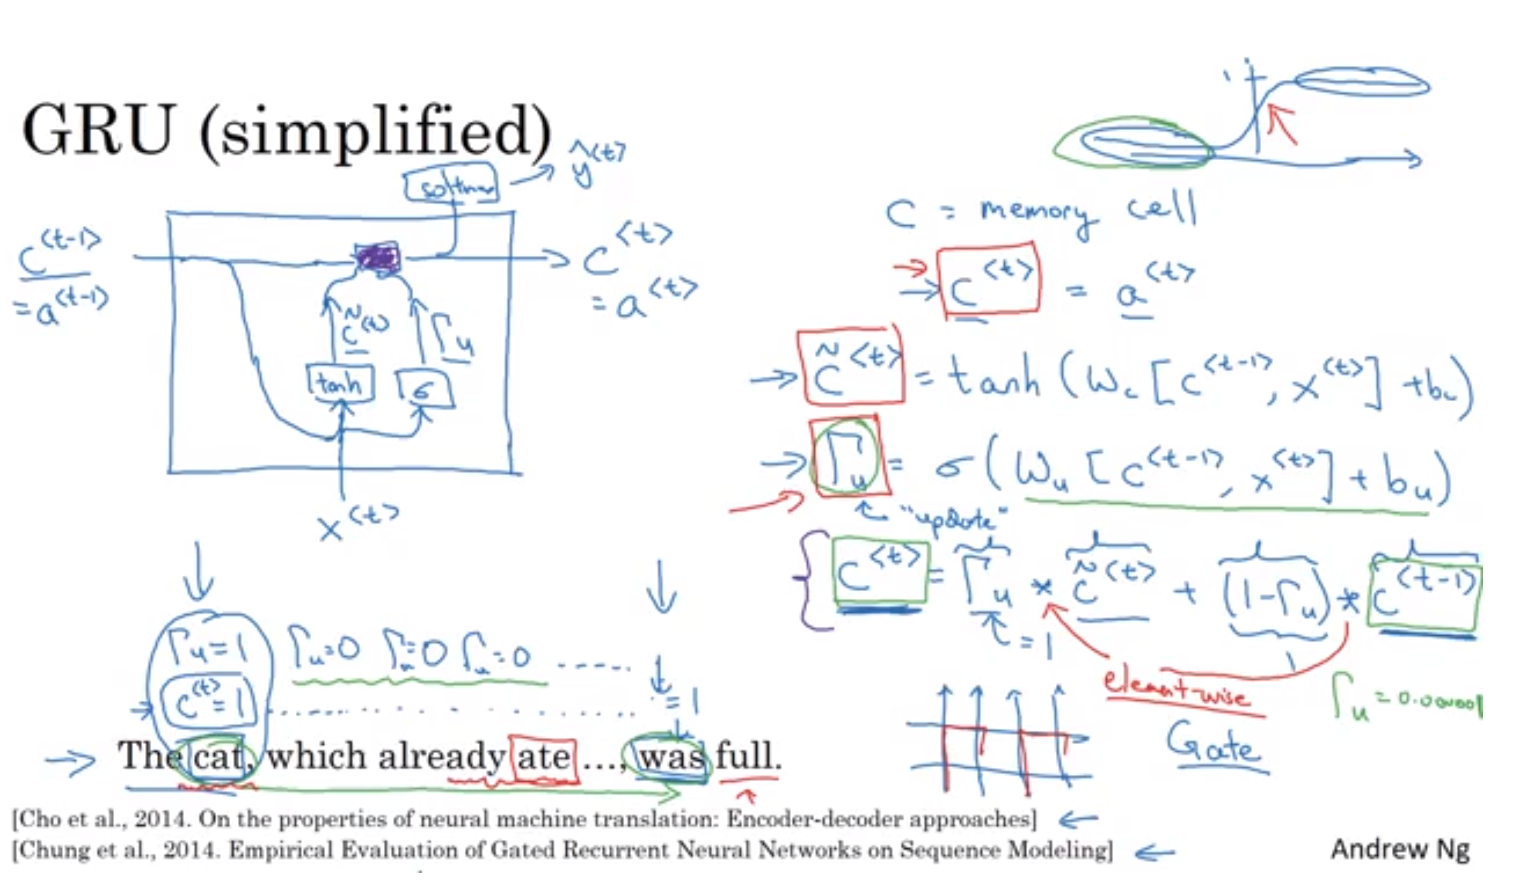 GRU (simplified)
softmax → ŷ<t>
c<t-1>
= a<t-1>
c<t>
= a<t>
c̃<t>
Γu
tanh
σ
x<t>
1
c = memory cell
c<t> = a<t>
c̃<t> = tanh (Wc [c<t-1>, x<t>] + bc)
Γu = σ (Wu [c<t-1>, x<t>] + bu)
"update"
c<t> = Γu * c̃<t> + (1-Γu) * c<t-1>
= 1
element-wise
Γu = 0.000001
Gate
Γu=1 Γu=0 Γu=0 Γu=0 .....
c<t>=1 ........ = 1
The cat, which already ate ..., was full.
[Cho et al., 2014. On the properties of neural machine translation: Encoder-decoder approaches]
[Chung et al., 2014. Empirical Evaluation of Gated Recurrent Neural Networks on Sequence Modeling]
Andrew Ng